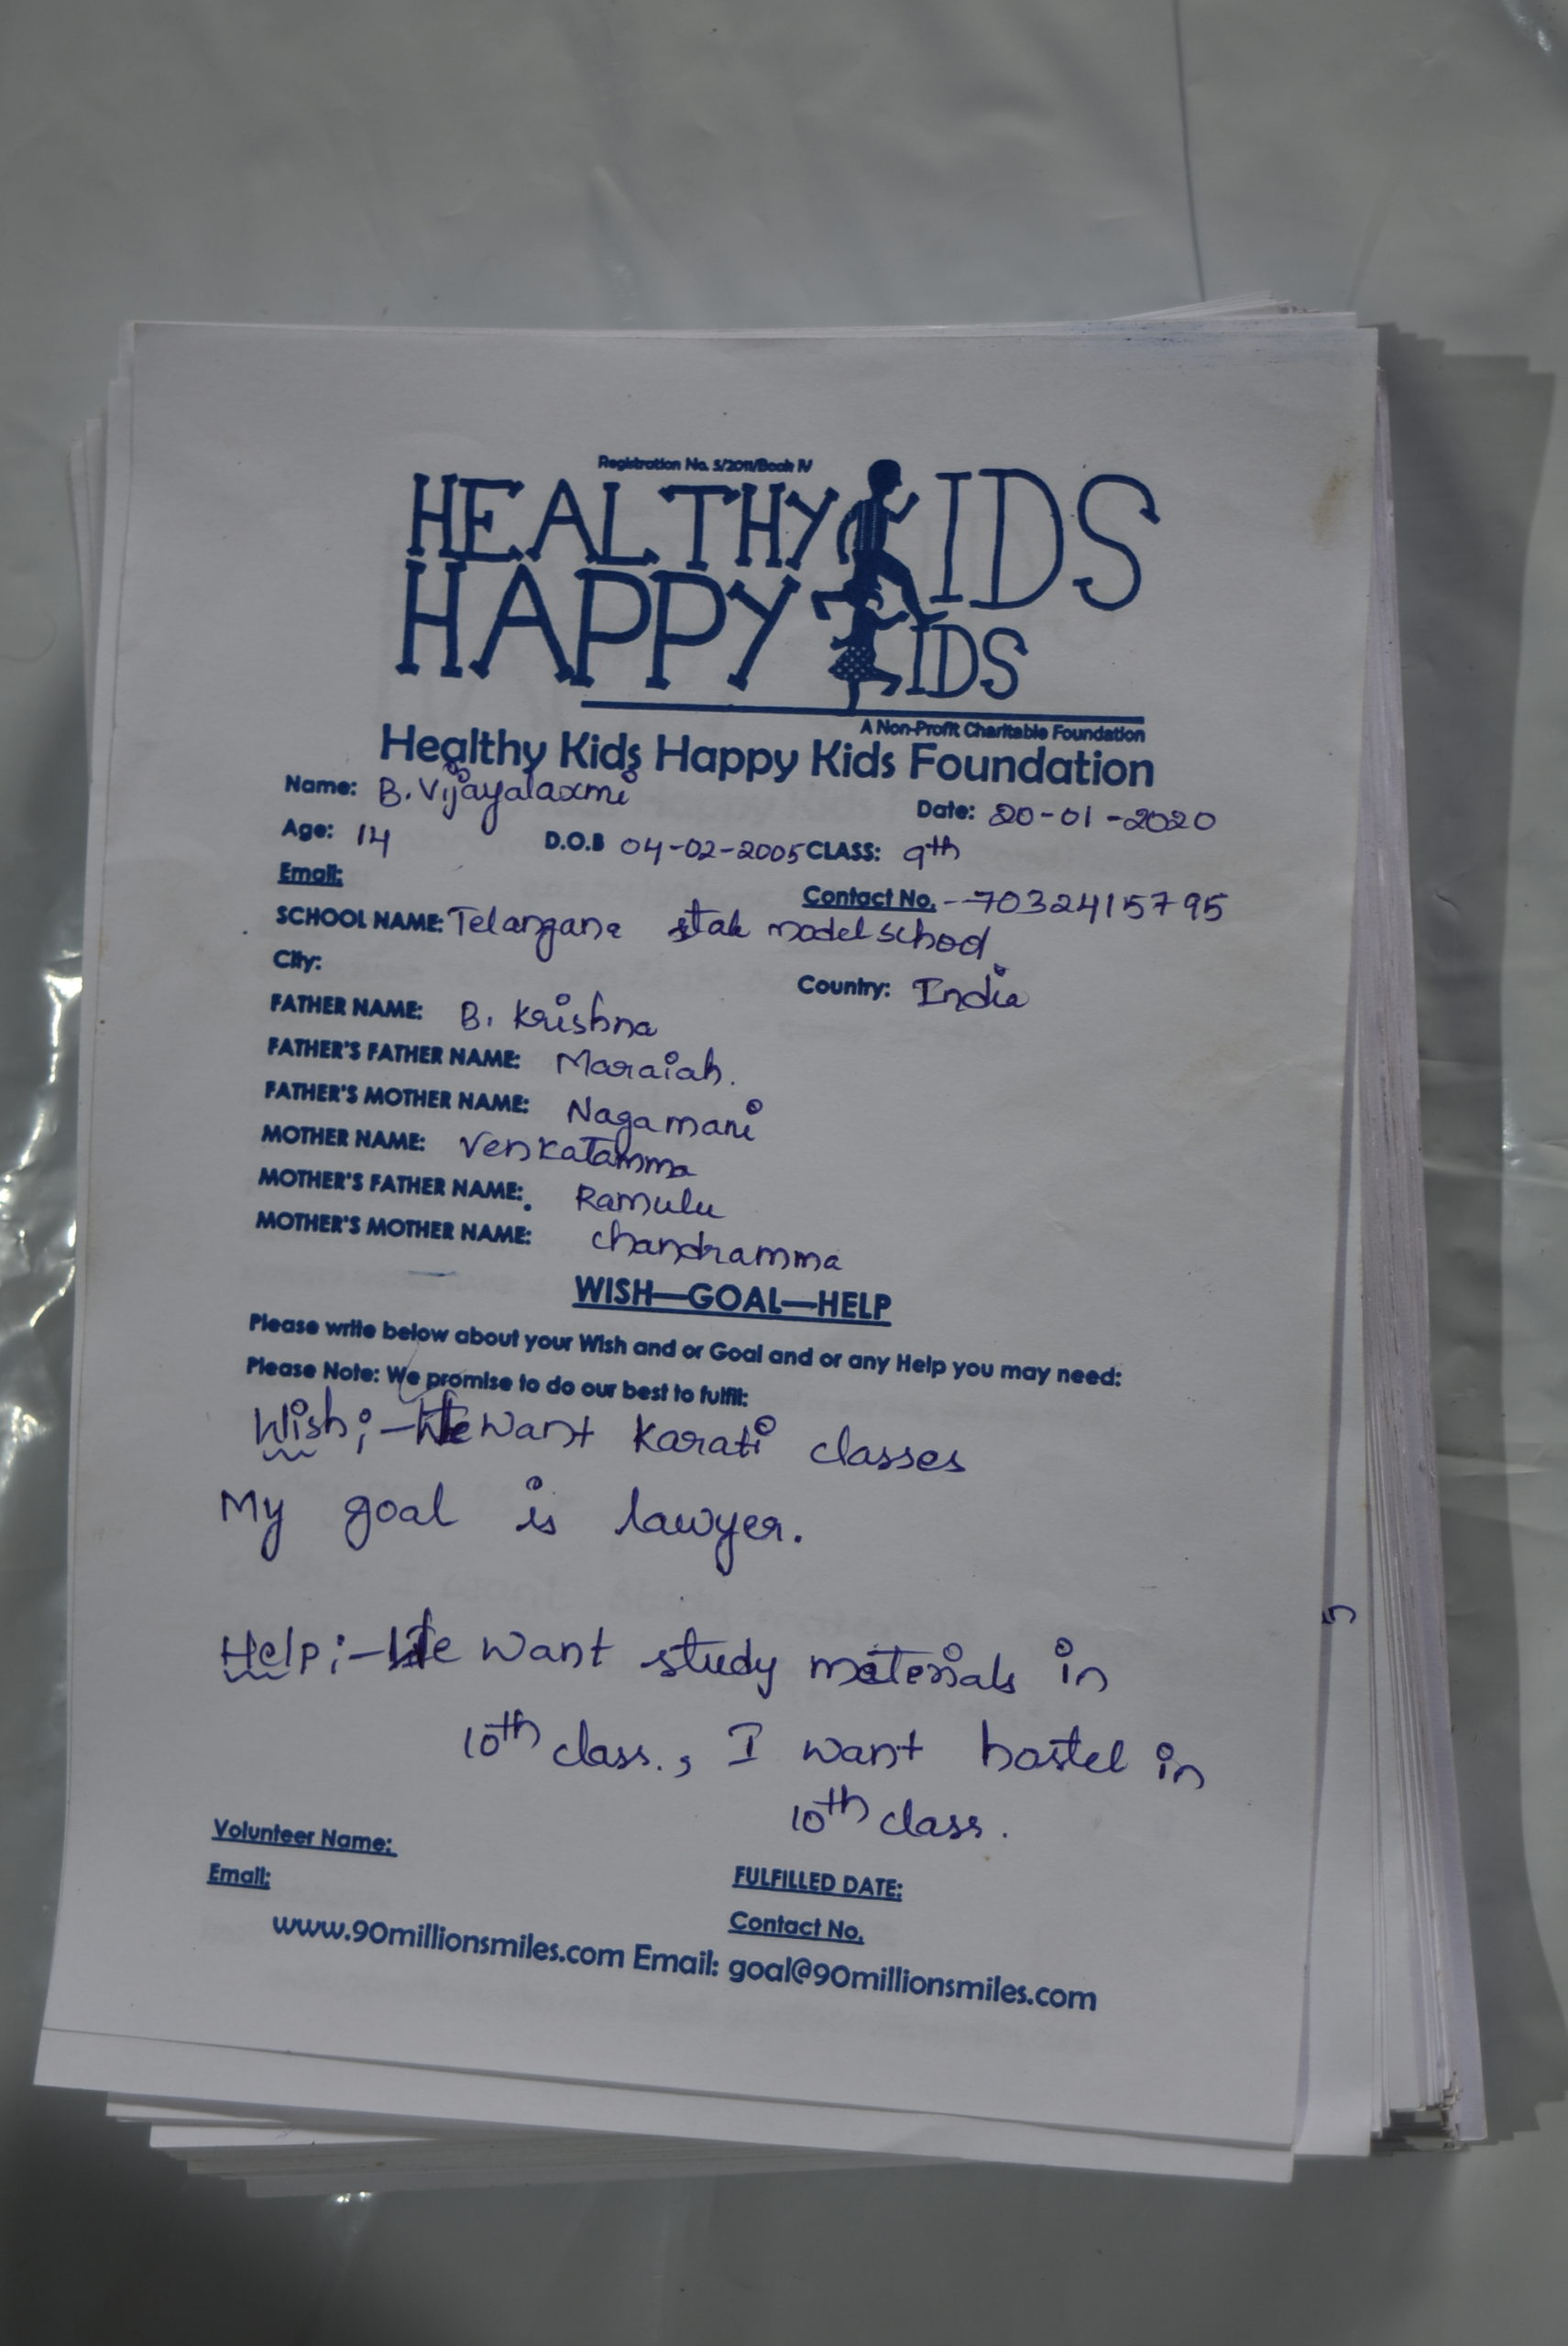 Registration No. 5/2011/Book IV
HEALTHY KIDS
HAPPY KIDS
A Non-Profit Charitable Foundation
Healthy Kids Happy Kids Foundation
Name: B. Vijayalaxmi Date: 20-01-2020
Age: 14 D.O.B 04-02-2005 CLASS: 9th
Email: Contact No. -7032415795
SCHOOL NAME: Telangana state model school
City: Country: India
FATHER NAME: B. Krishna
FATHER'S FATHER NAME: Maraiah.
FATHER'S MOTHER NAME: Nagamani
MOTHER NAME: Venkatamma
MOTHER'S FATHER NAME: Ramulu
MOTHER'S MOTHER NAME: chandramma
WISH—GOAL—HELP
Please write below about your Wish and or Goal and or any Help you may need:
Please Note: We promise to do our best to fulfil:
Wish:- We want Karati classes
My goal is lawyer.
Help:- We want study materials in
10th class., I want hostel in
10th class.
Volunteer Name:
Email: FULFILLED DATE:
Contact No.
www.90millionsmiles.com Email: goal@90millionsmiles.com